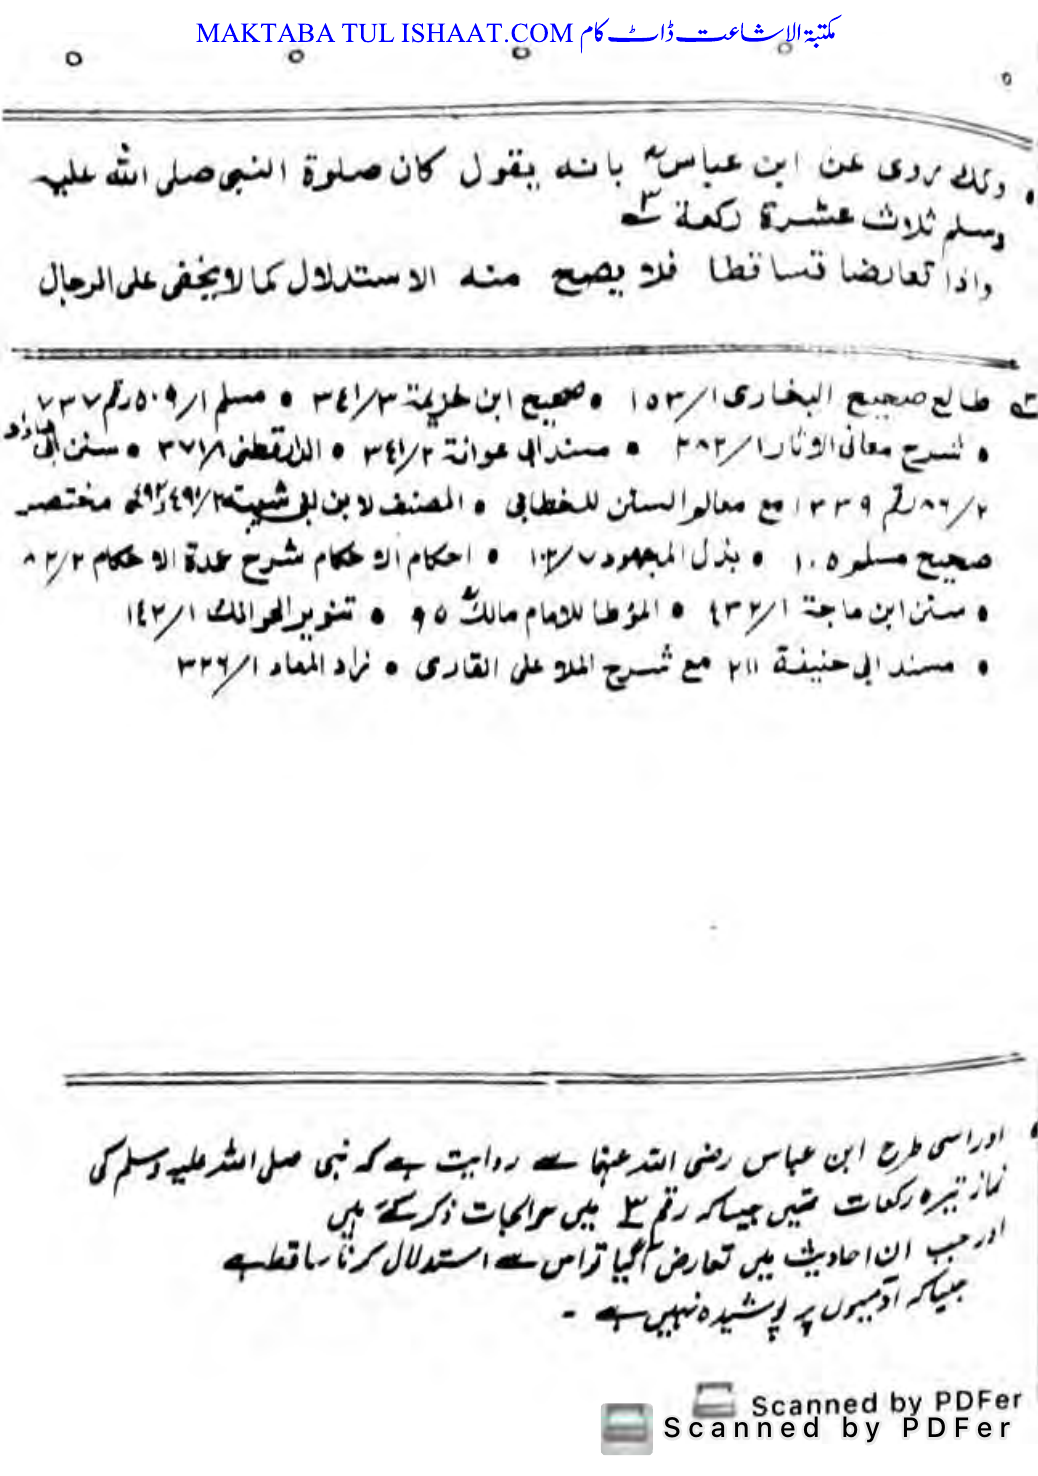 MAKTABA TUL ISHAAT.COM مکتبۃ الاشاعت ڈاٹ کام
وكذلك روى عن ابن عباس بانه يقول كان صلوة النبي صلى الله عليه
وسلم ثلاث عشرة ركعة ٣
واذا تعارضا تساقطا فلا يصح منه الاستدلال كما لا يخفى على الرجال
٣ طالع صحيح البخارى ١/١٥٣ • صحيح ابن خزيمة ٣/٣٤١ • مسلم ١/٥٠٩ رقم ٧٣٧
• شرح معانى الاثار ١/٢٨٢ • مسند ابي عوانة ٢/٣٤١ • الدارقطنى ١/٣٧١ • سنن ابى داؤد
٢/٨٦ رقم ١٣٣٩ مع معالم السنن للخطابي • المصنف لابن ابي شيبة ٢/٤٩١ • مختصر
صحيح مسلم ١٠٥ • بذل المجهود ٧/١٠٢ • احكام الاحكام شرح عمدة الاحكام ٢/٨٢
• سنن ابن ماجة ١/٤٣٢ • المؤطا للامام مالك ٩٥ • تنوير الحوالك ١/١٤٢
• مسند ابي حنيفة ٢١١ مع شرح الملا على القارى • زاد المعاد ١/٣٢٦
• اور اسی طرح ابن عباس رضی اللہ عنہا سے روایت ہے کہ نبی صلی اللہ علیہ وسلم کی
نماز تیرہ رکعات تھیں جیسا کہ رقم ٣ میں حوالجات ذکر کئے ہیں
اور جب ان احادیث میں تعارض آگیا تو اس سے استدلال کرنا ساقط ہے
جیسا کہ آدمیوں پر پوشیدہ نہیں ہے ۔
Scanned by PDFer
Scanned by PDFer